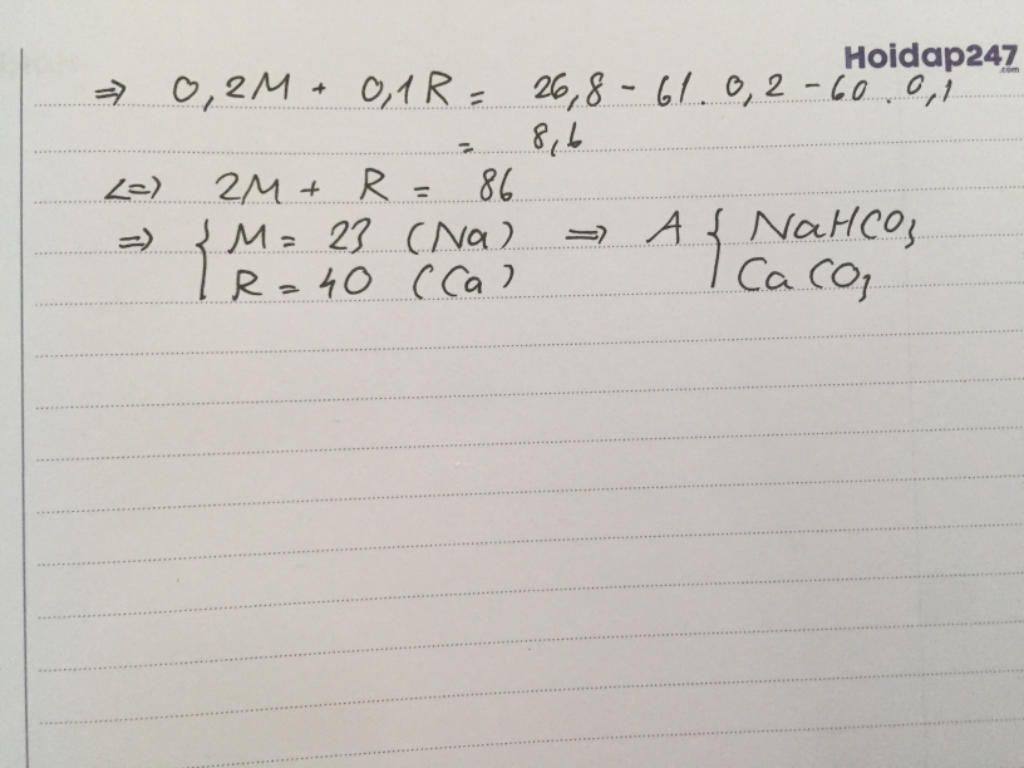 Hoidap247
.com
⇒ 0,2M + 0,1R = 26,8 - 61. 0,2 - 60 . 0,1
= 8,6
<=> 2M + R = 86
⇒ { M = 23 (Na) ⇒ A { NaHCO3
R = 40 (Ca) CaCO3